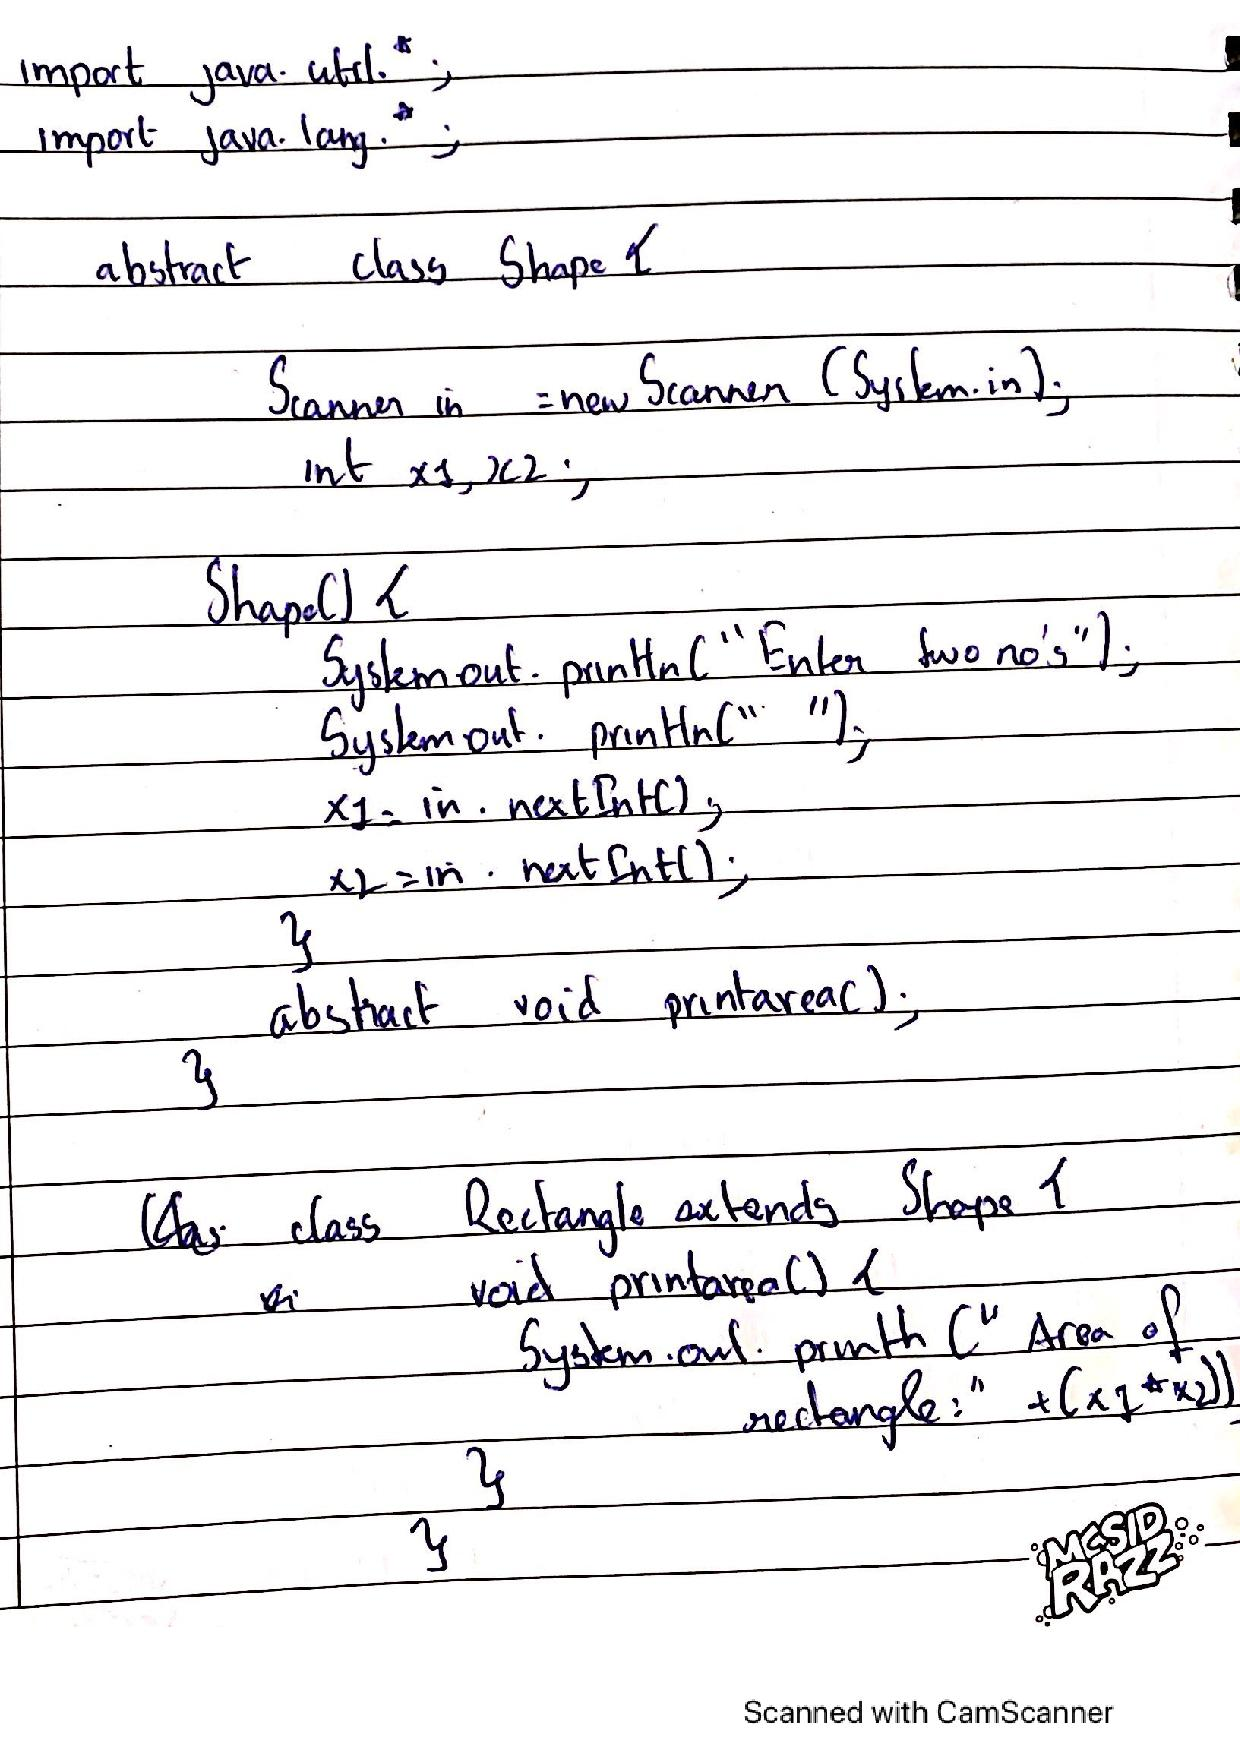 import java.util.*;
import java.lang.*;
abstract class Shape {
Scanner in = new Scanner (System.in);
int x1, x2;
Shape() {
System out. println("Enter two no's");
System out. println(" ");
x1 = in . nextInt();
x2 = in . nextInt();
}
abstract void printarea();
}
class Rectangle extends Shape {
void printarea() {
System.out. println (" Area of
rectangle:" +(x1*x2))
}
}
MCSID
RAZZ
Scanned with CamScanner